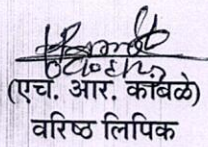 (एच. आर. कांबळे)
वरिष्ठ लिपिक